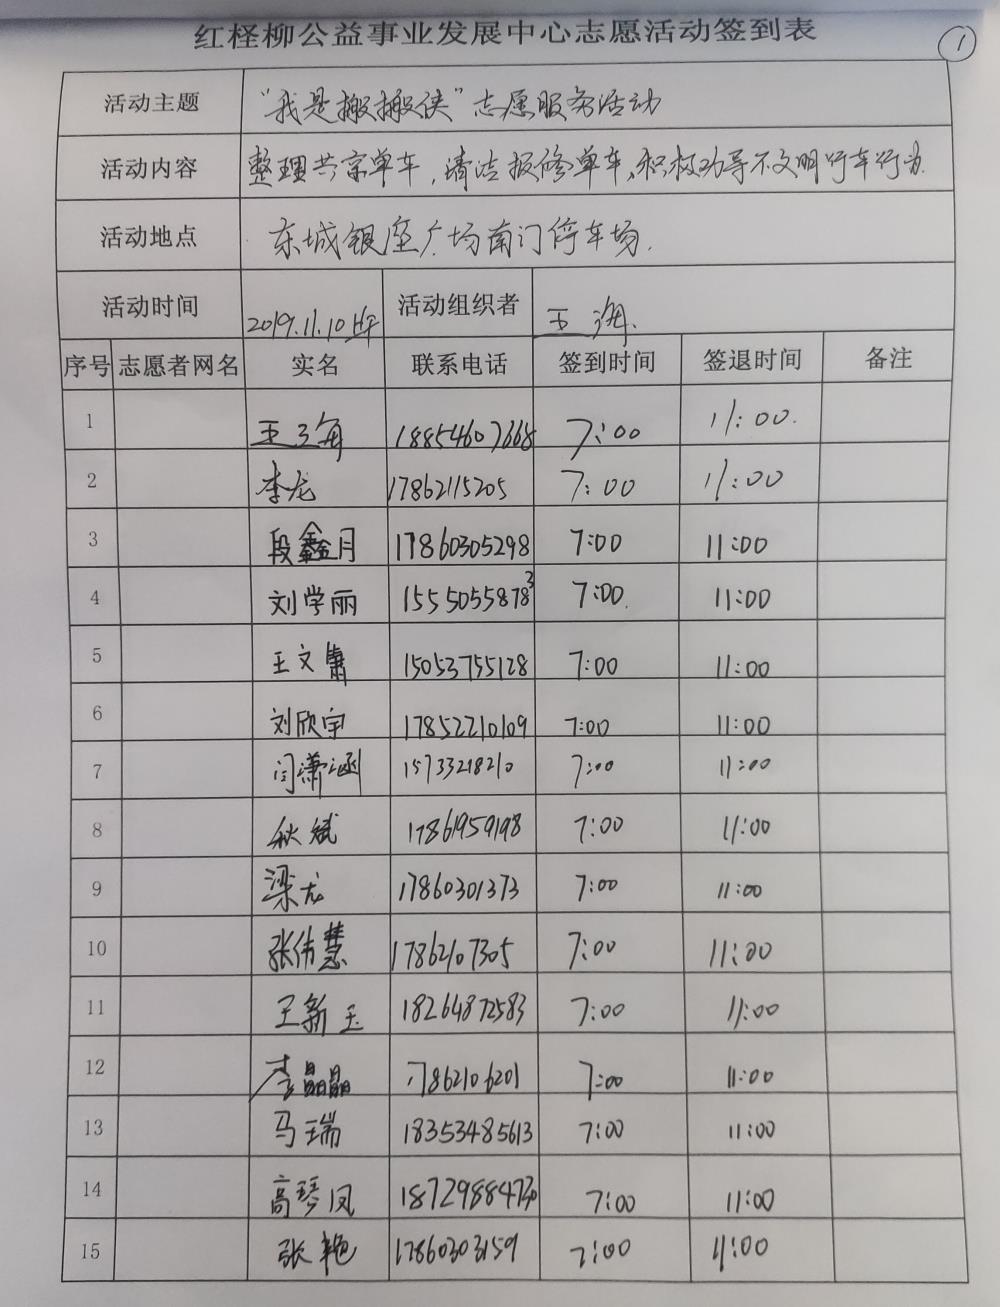 红柽柳公益事业发展中心志愿活动签到表
1
活动主题 "我是搬搬侠"志愿服务活动
活动内容 整理共享单车,清洁报修单车,积极劝导不文明行车行为.
活动地点 东城银座广场南门停车场.
活动时间 2019.11.10 上午 活动组织者 王海
序号 志愿者网名 实名 联系电话 签到时间 签退时间 备注
1 王海 18854607668 7:00 11:00.
2 李龙 17862115205 7:00 11:00
3 段鑫月 17860305298 7:00 11:00
4 刘学丽 15550558783 7:00. 11:00
5 王文 15053755128 7:00 11:00
6 刘欣宇 17852210109 7:00 11:00
7 闫潇涵 15733218210 7:00 11:00
8 秋斌 17861959198 7:00 11:00
9 梁龙 17860301373 7:00 11:00
10 张伟慧 17862107305 7:00 11:00
11 王新玉 18264872583 7:00 11:00
12 李晶晶 17862106201 7:00 11:00
13 马瑞 18353485613 7:00 11:00
14 高琴凤 18729884730 7:00 11:00
15 张艳 17860303159 7:00 11:00